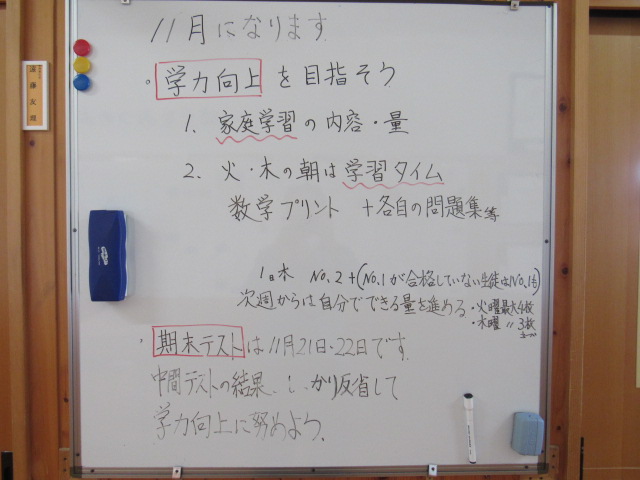 11月になります
。学力向上を目指そう
1. 家庭学習の内容・量
2. 火・木の朝は学習タイム
数学プリント +各自の問題集等
1日木 No.2+(No.1が合格していない生徒はNo.1も)
次週からは自分でできる量を進める
・火曜最大4枚
・木曜 〃 3枚
。期末テストは11月21日・22日です.
中間テストの結果、しっかり反省して
学力向上に努めよう.